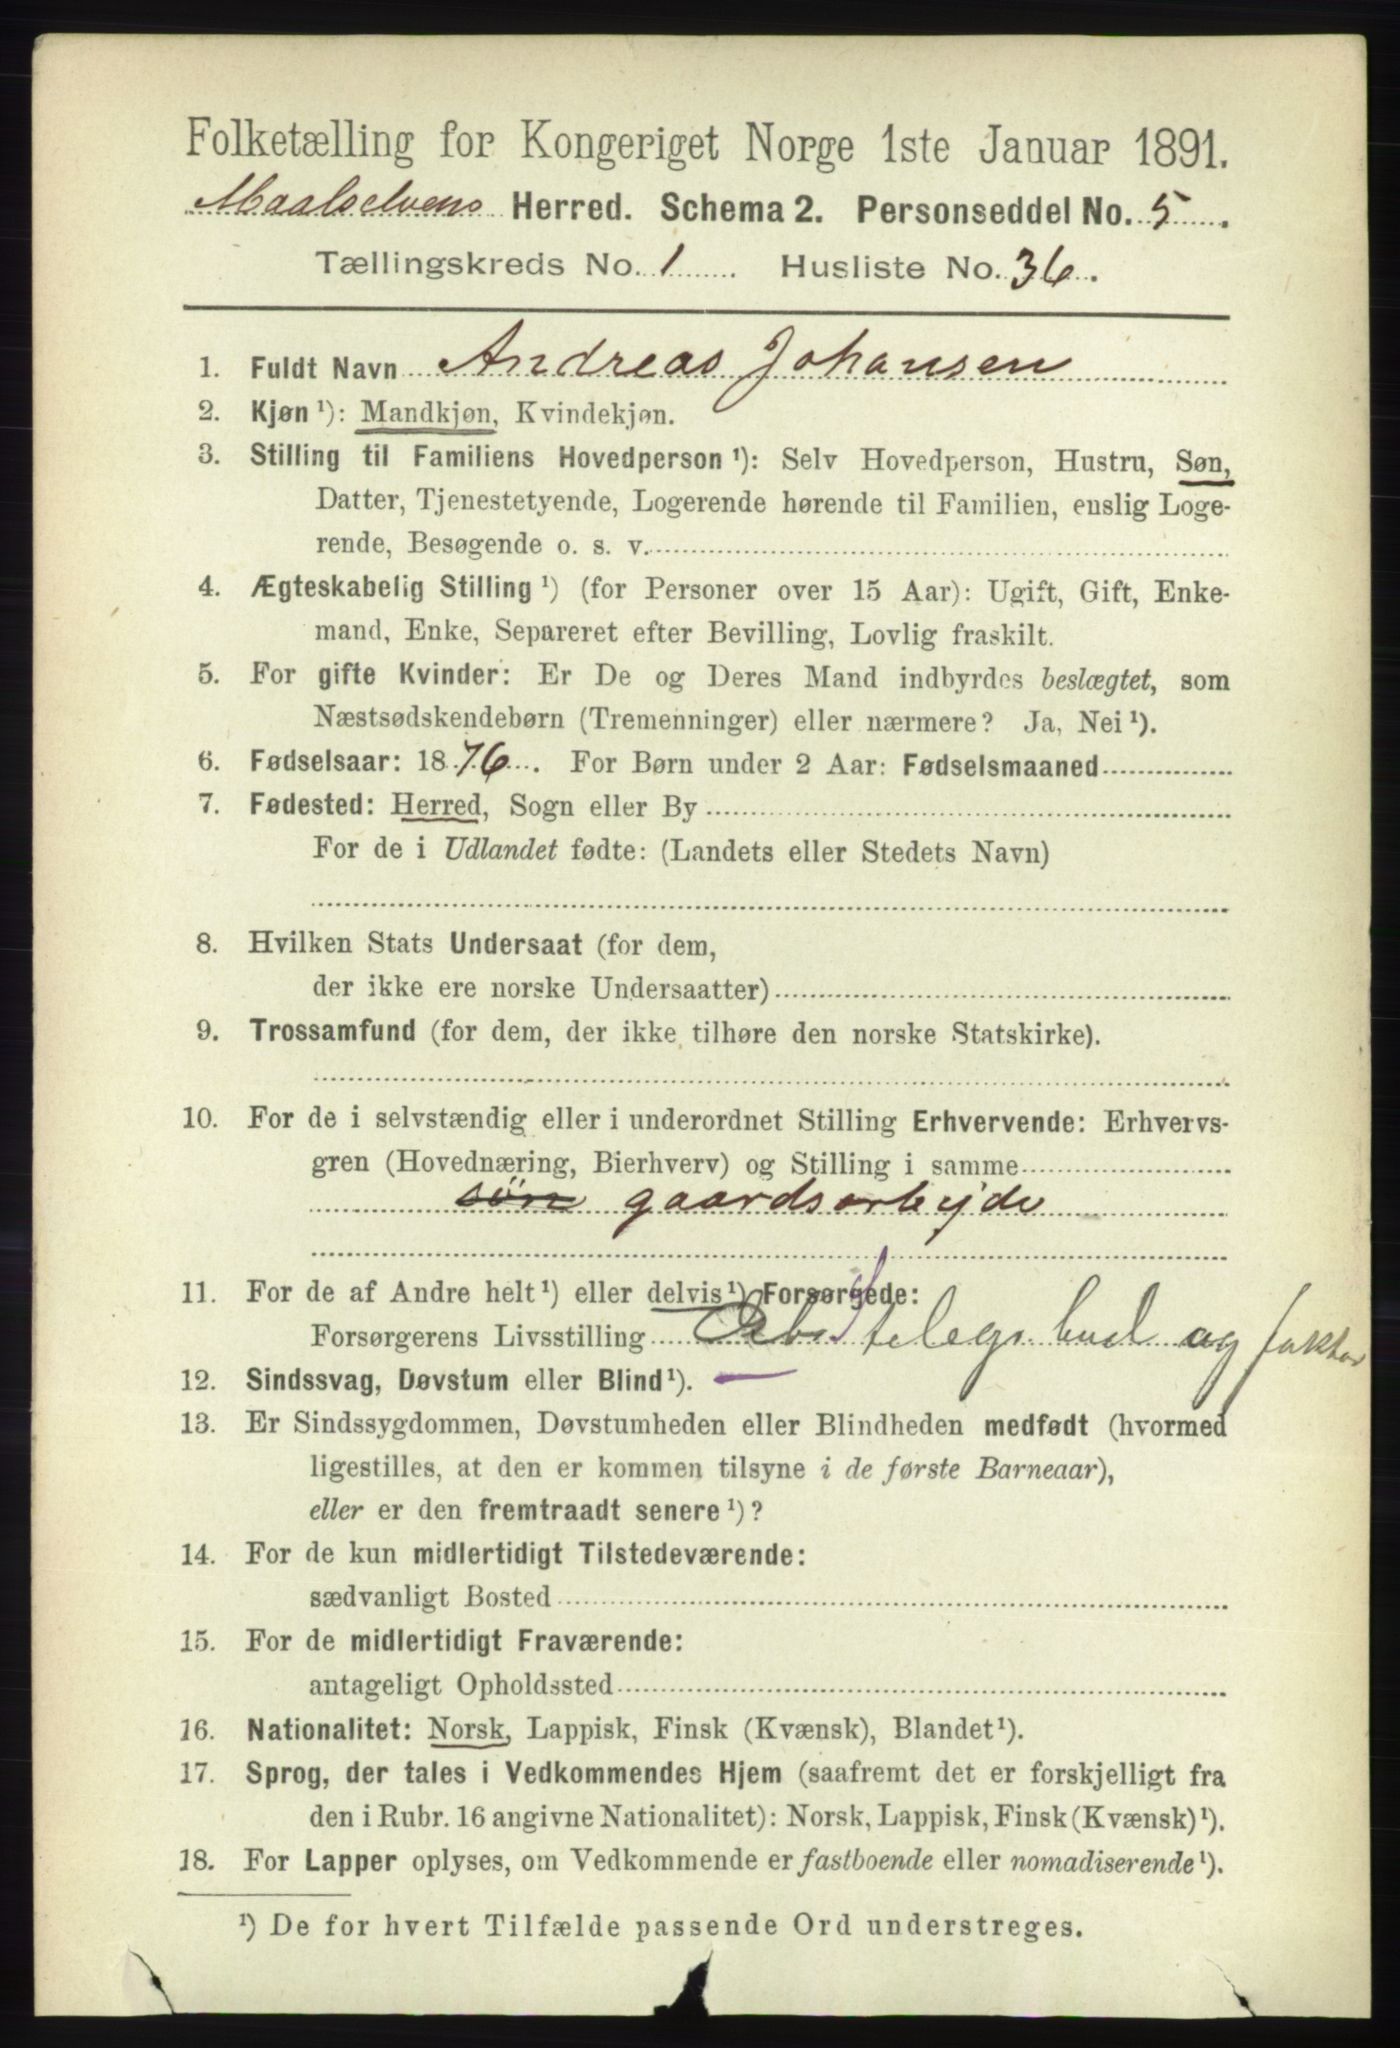 Folketælling for Kongeriget Norge 1ste Januar 1891.
Maalselvens Herred. Schema 2. Personseddel No. 5.
Tællingskreds No. 1 Husliste No. 36.
1. Fuldt Navn Andreas Johansen
2. Kjøn ¹): Mandkjøn, Kvindekjøn.
3. Stilling til Familiens Hovedperson ¹): Selv Hovedperson, Hustru, Søn,
Datter, Tjenestetyende, Logerende hørende til Familien, enslig Loge-
rende, Besøgende o. s. v.
4. Ægteskabelig Stilling ¹) (for Personer over 15 Aar): Ugift, Gift, Enke-
mand, Enke, Separeret efter Bevilling, Lovlig fraskilt.
5. For gifte Kvinder: Er De og Deres Mand indbyrdes beslægtet, som
Næstsødskendebørn (Tremenninger) eller nærmere? Ja, Nei ¹).
6. Fødselsaar: 1876. For Børn under 2 Aar: Fødselsmaaned
7. Fødested: Herred, Sogn eller By
For de i Udlandet fødte: (Landets eller Stedets Navn)
8. Hvilken Stats Undersaat (for dem,
der ikke ere norske Undersaatter)
9. Trossamfund (for dem, der ikke tilhøre den norske Statskirke).
10. For de i selvstændig eller i underordnet Stilling Erhvervende: Erhvervs-
gren (Hovednæring, Bierhverv) og Stilling i samme
søn gaardsarbejde
11. For de af Andre helt ¹) eller delvis ¹) Forsørgede:
Forsørgerens Livsstilling telegs.bud og
12. Sindssvag, Døvstum eller Blind ¹). —
13. Er Sindssygdommen, Døvstumheden eller Blindheden medfødt (hvormed
ligestilles, at den er kommen tilsyne i de første Barneaar),
eller er den fremtraadt senere ¹)?
14. For de kun midlertidigt Tilstedeværende:
sædvanligt Bosted
15. For de midlertidigt Fraværende:
antageligt Opholdssted
16. Nationalitet: Norsk, Lappisk, Finsk (Kvænsk), Blandet ¹).
17. Sprog, der tales i Vedkommendes Hjem (saafremt det er forskjelligt fra
den i Rubr. 16 angivne Nationalitet): Norsk, Lappisk, Finsk (Kvænsk) ¹).
18. For Lapper oplyses, om Vedkommende er fastboende eller nomadiserende ¹).
¹) De for hvert Tilfælde passende Ord understreges.